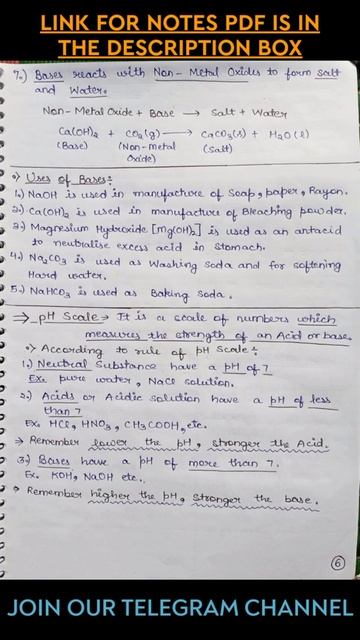 LINK FOR NOTES PDF IS IN
THE DESCRIPTION BOX
7.) Bases reacts with Non-Metal Oxides to form Salt
and Water.
Non-Metal Oxide + Base → Salt + Water
Ca(OH)₂ + CO₂(g) → CaCO₃(s) + H₂O(l)
(Base) (Non-metal (Salt)
Oxide)
Uses of Bases:
1.) NaOH is used in manufacture of Soap, paper, Rayon.
2.) Ca(OH)₂ is used in manufacture of Bleaching powder.
3.) Magnesium Hydroxide [Mg(OH)₂] is used as an antacid
to neutralise excess acid in Stomach.
4.) Na₂CO₃ is used as Washing Soda and for softening
Hard water.
5.) NaHCO₃ is used as Baking Soda.
⇒ pH Scale → It is a scale of numbers which
measures the strength of an Acid or base.
According to rule of pH Scale:
1.) Neutral Substance have a pH of 7
Ex. pure water, NaCl solution.
2.) Acids or Acidic solution have a pH of less
than 7
Ex. HCl, HNO₃, CH₃COOH, etc.
→ Remember lower the pH, stronger the Acid.
3.) Bases have a pH of more than 7.
Ex. KOH, NaOH etc.
→ Remember higher the pH, stronger the base.
6
JOIN OUR TELEGRAM CHANNEL